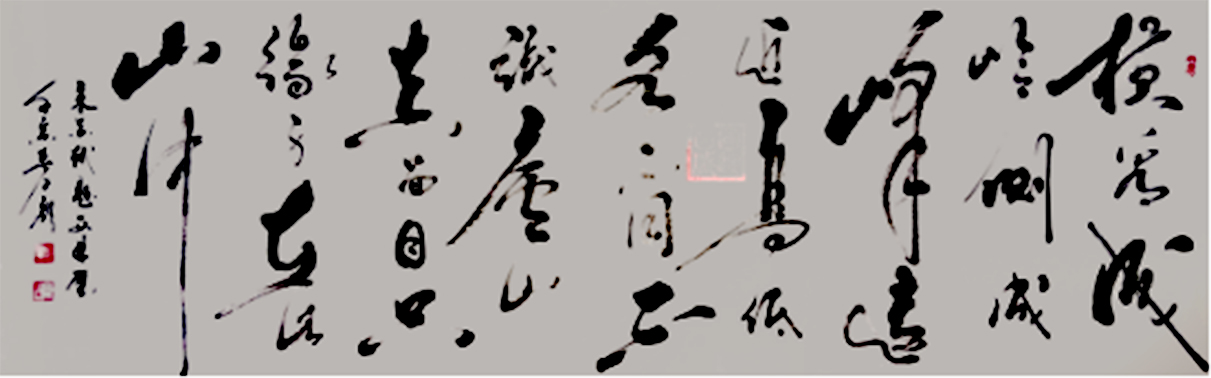 橫看成
岭侧成
峰遠
近高低
各不同不
識廬山
真面目只
緣身在此
山中
宋苏轼题西林壁